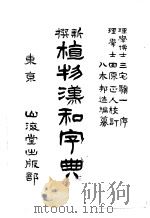 理學博士 三宅驥一 序
理學士 田原正人 校訂
八木邦造 編纂
新撰
植物漢和字典
東京 山海堂出版部